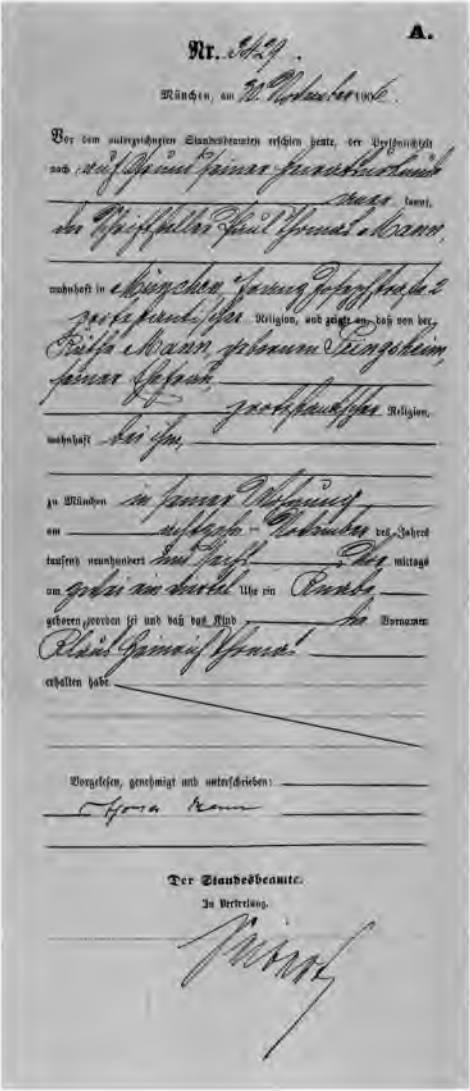 A.
Nr. 3429.
München, am 20. November 1906.
Vor dem unterzeichneten Standesbeamten erschien heute, der Persönlichkeit
nach auf Grund seiner Heiratsurkunde
kannt,
der Schriftsteller Paul Thomas Mann,
wohnhaft in München, Franz Josephstraße 2
protestantischer Religion, und zeigte an, daß von der
Mann, geborenen Pringsheim,
seiner Ehefrau,
protestantischer Religion,
wohnhaft bei ihm,
zu München in seiner Wohnung
am achtzehn-November des Jahres
tausend neunhundert und sechs Vor mittags
um ein viertel Uhr ein Knabe
geboren worden sei und daß das Kind die Vornamen
Klaus Heinrich Thomas
erhalten habe.
Vorgelesen, genehmigt und unterschrieben:
Thomas Mann
Der Standesbeamte.
In Vertretung.